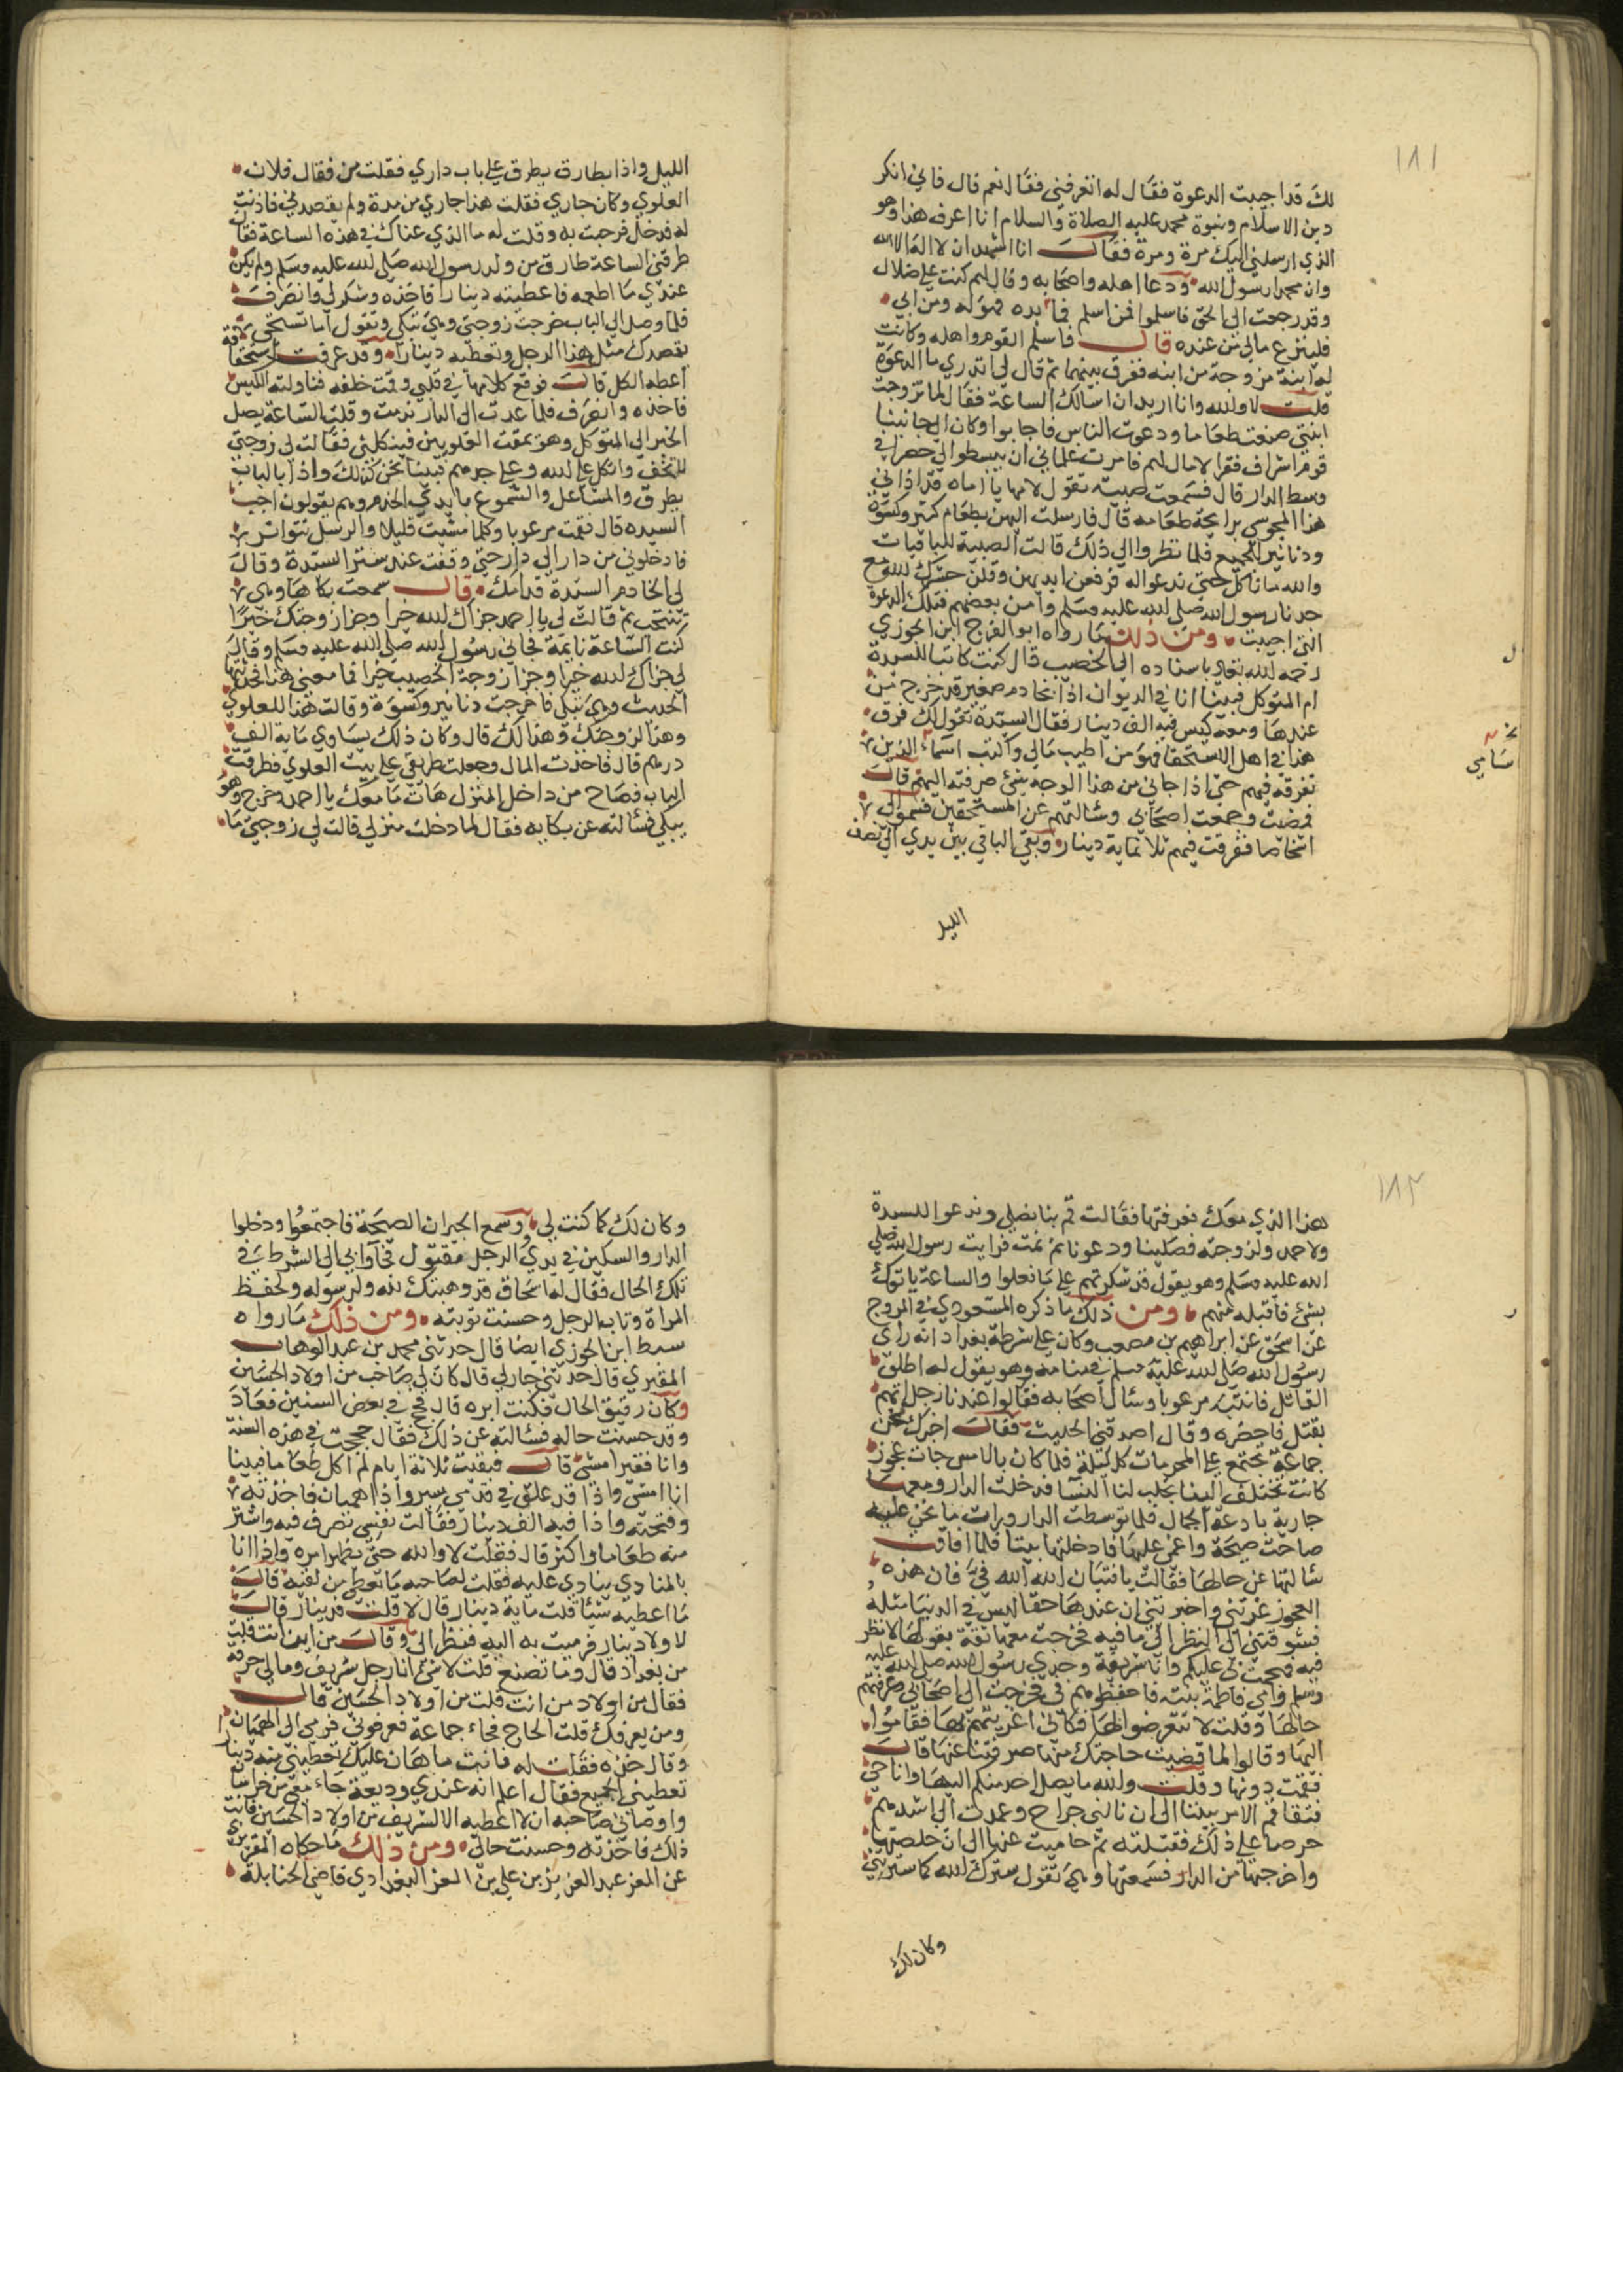 ١٨١
لك قد اجيبت الدعوة فقال له اتعرفني فقال نعم قال فاني انكر
دين الاسلام ونبوة محمد عليه الصلاة والسلام انا اعرف هذا وهو
الذي ارسلني اليك مرة ومرة فقالـــت انا اشهد ان لا اله الا الله
وان محمدا رسول الله ودعا اهله واصحابه وقال لهم كنت على ضلال
وقد رجعت الى الحق فاسلموا فمن اسلم فما بيده فهو له ومن ابى
فلينزع مالي من عنده قالــــ فاسلم القوم واهله وكانت
له ابنة مزوجة من ابنه ففرق بينهما ثم قال لي اتدري ما الدعوة
قلت لا والله وانا اريد ان اسالك الساعة فقال لما تزوجت
ابنتي صنعت طعاما ودعوت الناس فاجابوا وكان الى جانبنا
قوم اشراف فقرا لا مال لهم فامرت غلماني ان يبسطوا لي حصرا في
وسط الدار قال فسمعت صبية تقول لامها يا اماه قد اذاني
هذا المجوسي برايحة طعامه قال فارسلت اليهن بطعام كثير وكسوة
ودنانير للجميع فلما نظروا الى ذلك قالت الصبية للباقيات
والله ما ناكل حتى ندعوا له فرفعن ايديهن وقلن حشرك الله مع
جدنا رسول الله صلى الله عليه وسلم وامن بعضهم فتلك الدعوة
التي اجيبت ومن ذلك ما رواه ابو الفرج ابن الجوزي
رحمه الله تعالى باسناده الى الخصيب قال كنت كاتبا للسيدة
ام المتوكل فبينا انا في الديوان اذا بخادم صغير قد خرج من
عندها ومعه كيس فيه الف دينار فقال السيدة تقول لك فرق
هذا في اهل الاستحقاق فهو من اطيب مالي واكتب اسماء الذين
تفرقه فيهم حتى اذا جاني من هذا الوجه شئ صرفته اليهم قالــت
فمضيت وجمعت اصحابي وسالتهم عن المستحقين فسموا لي
اشخاصا ففرقت فيهم ثلاثماية دينار وبقي الباقي بين يدي الى نصف
الليل
الليل واذا بطارق يطرق على باب داري فقلت من فقال فلان
العلوي وكان جاري فقلت هذا جاري من مدة ولم يقصدني فاذنت
له فدخل فرحبت به وقلت له ما الذي عناك في هذه الساعة فقال
طرقني الساعة طارق من ولد رسول الله صلى الله عليه وسلم ولم يكن
عندي ما اطعمه فاعطيته دينارا فاخذه وشكر لي وانصرف
فلما وصل الى الباب خرجت زوجتي وهي تبكي وتقول اما تستحي
يقصدك مثل هذا الرجل وتعطيه دينارا وقد عرفت استحقاقه
اعطه الكل قالت فوقع كلامها في قلبي وقمت خلفه فناولته الكيس
فاخذه وانصرف فلما عدت الى الدار ندمت وقلت الساعة يصل
الخبر الى المتوكل وهو يمقت العلويين فينكلني فقالت لي زوجتي
لا تخف واتكل على الله وعلى جدهم فبينا نحن كذلك واذا بالباب
يطرق والمشاعل والشموع بايدي الخدم وهم يقولون اجب
السيده قال فقمت مرعوبا وكلما مشيت قليلا والرسل تتواتر
فادخلوني من دار الى دار حتى وقفت عند ستر السيدة وقال
لي الخادم السيدة قدامك قالــــ سمعت بكاها وهي
تنتحب ثم قالت لي يا احمد جزاك الله خيرا وجزا زوجتك خيرا
كنت الساعة نايمة فجاني رسول الله صلى الله عليه وسلم وقال
لي جزاك الله خيرا وجزا زوجة الخصيب خيرا فما معنى هذا فحدثتها
الحديث وهي تبكي فاخرجت دنانير وكسوة وقالت هذا للعلوي
وهذا لزوجتك وهذا لك قال وكان ذلك يساوي ماية الف
درهم قال فاخذت المال وجعلت طريقي على بيت العلوي فطرقت
الباب فصاح من داخل المنزل هات ما معك يا احمد وخرج وهو
يبكي فسالته عن بكايه فقال لما دخلت منزلي قالت لي زوجتي ما
١٨٢
هذا الذي معك فعرفتها فقالت قم بنا نصلي وندعوا للسيدة
ولاحمد ولزوجته فصلينا ودعونا ثم نمت فرايت رسول الله صلى
الله عليه وسلم وهو يقول قد شكرتهم على ما فعلوا والساعة ياتوك
بشئ فاقبله منهم ومن ذلك ما ذكره المسعودي في المروج
عن اسحق عن ابراهيم بن مصعب وكان على شرطة بغداد انه راى
رسول الله صلى الله عليه وسلم في منامه وهو يقول له اطلق
القاتل فانتبه مرعوبا وسال اصحابه فقالوا عندنا رجل اتهم
بقتل فاحضره وقال اصدقني الحديث فقالت اخبرك نحن
جماعة نجتمع على المحرمات كل ليلة فلما كان بالامس جات عجوز
كانت تختلف الينا تجلب لنا النسا فدخلت الدار ومعها
جارية بارعة الجمال فلما توسطت الدار ورات ما نحن عليه
صاحت صيحة واغمي عليها فادخلتها بيتا فلما افاقت
سالتها عن حالها فقالت يا فتيان الله الله في فان هذه
العجوز غرتني واخبرتني ان عندها حقا ليس في الدنيا مثله
فشوقتني الى النظر الى ما فيه فخرجت معها ثقة بقولها لانظر
فيه فهجمت بي عليكم وانا شريفة وجدي رسول الله صلى الله عليه
وسلم وامي فاطمة بنته فاحفظوهم في فخرجت الى اصحابي وعرفتهم
حالها وقلت لا تتعرضوا لها فكاني اغريتهم بها فقاموا
اليها وقالوا لما قضيت حاجتك منها صرفتنا عنها قالــت
فقمت دونها وقلت والله ما يصل احد منكم اليها وانا حي
فتفاقم الامر بيننا الى ان نالني جراح وعمدت الى اشدهم
حرصا على ذلك فقتلته ثم حاميت عنها الى ان خلصتها
واخرجتها من الدار فسمعتها وهي تقول سترك الله كما سترتني
وكان لك
وكان لك كما كنت لي وسمع الجيران الصيحة فاجتمعوا ودخلوا
الدار والسكين في يدي والرجل مقتول فجآوا بي الى الشرطة في
تلك الحال فقال له اسحاق قد وهبتك لله ولرسوله ولحفظ
المراة وتاب الرجل وحسنت توبته ومن ذلك ما رواه
سبط ابن الجوزي ايضا قال حدثني محمد بن عبد الوهاب
المقبري قال حدثني جار لي قال كان لي صاحب من اولاد الحسين
وكان رقيق الحال فكنت ابره قال فحج في بعض السنين فعاد
وقد حسنت حاله فسالته عن ذلك فقال حججت في هذه السنة
وانا فقير امشي قالــــ فبقيت ثلاثة ايام لم اكل طعاما فبينا
انا امشي واذا قد علق في قدمي سير واذا هميان فاخذته
وفتحته واذا فيه الف دينار فقالت نفسي تصرف فيه واشتر
منه طعاما واكثر قال فقلت لا والله حتى يظهر امره واذا انا
بالمنادي ينادي عليه فقلت لصاحبه ما تعطي من لقيه قالــت
ما اعطيه شيا قلت ماية دينار قال لا قلت فدينار قالــت
لا ولا دينار فرميت به اليه فنظر الي وقالــــ من اين انت قلت
من بغداد قال وما تصنع قلت لا شئ انا رجل شريف وما لي حرفة
فقال من اولاد من انت قلت من اولاد الحسين قالــــ
ومن يعرفك قلت الحاج فجاء جماعة فعرفوني فرمى الي الهميان
وقال خذه فقلت له فانت ما هان عليك تعطيني منه دينارا
تعطيني الجميع فقال اعلم انه عندي وديعة جاء معي من خراسان
واوصاني صاحبه ان لا اعطيه الا لشريف من اولاد الحسين فانت
ذلك فاخذته وحسنت حالي ومن ذلك ما حكاه المقريزي
عن المعز عبد العزيز بن علي بن العز البغدادي قاضي الحنابلة